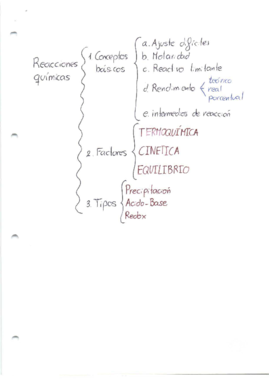 Reacciones
químicas
1. Conceptos
básicos
a. Ajuste difíciles
b. Molaridad
c. Reactivo limitante
d. Rendimiento
teórico
real
porcentual
e. intermedios de reacción
2. Factores
TERMOQUÍMICA
CINETICA
EQUILIBRIO
3. Tipos
Precipitación
Acido-Base
Redox